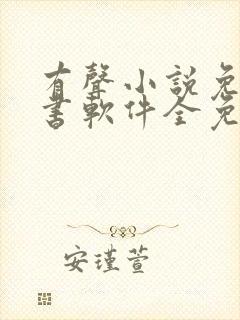 有聲小説免
書軟件全免
安瑾萱